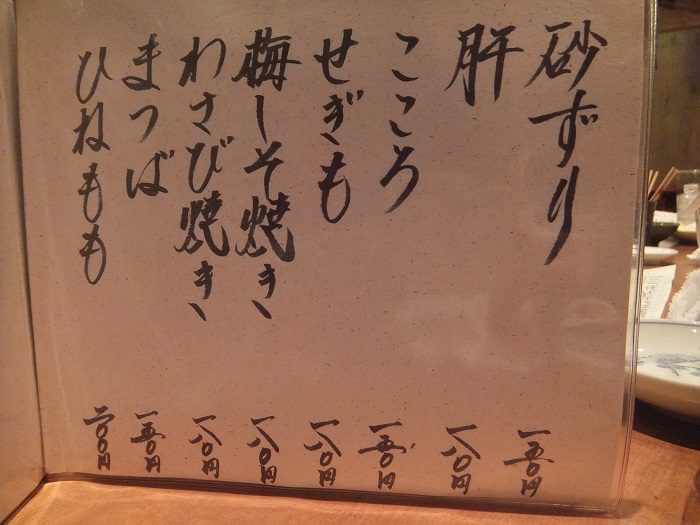 砂ずり 一五〇円
肝 一八〇円
こころ 一五〇円
せぎも 一八〇円
梅しそ焼き 一八〇円
わさび焼き 一八〇円
まつば 一五〇円
ひねもも 二〇〇円